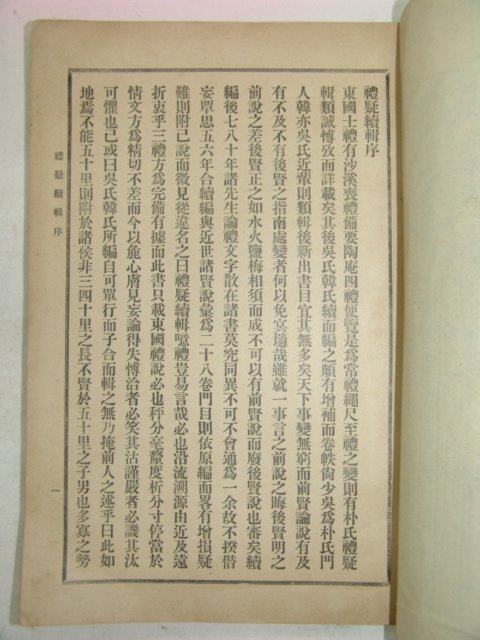 禮疑續輯序
東國士禮有沙溪喪禮備要陶庵四禮便覽是爲常禮繩尺至禮之變則有朴氏禮疑
輯類誠博攷而詳載矣其後吳氏韓氏續而編之頗有增補而卷帙尙少吳爲朴氏門
人韓亦吳氏近輩則類輯後新出書目宜其無多矣天下事變無窮而前賢論說有及
有不及不有後賢之指南處變者何以免冥擿哉雖就一事言之前說之晦後賢明之
前說之差後賢正之如水火鹽梅相須而成不可以有前賢說而廢後賢說也審矣續
編後七八十年諸先生論禮文字散在諸書莫究同異不可不會通爲一余故不揆僭
妄覃思五六年合續編與近世諸賢說彙爲二十八卷門目則依原編而畧有增損疑
難則附己說而微見從違名之曰禮疑續輯噫禮豈易言哉必也沿流溯源由近及遠
折衷乎三禮方爲完備有據而此書只載東國禮說必也秤分毫釐度析分寸停當於
情文方爲精切不差而今以麁心膚見妄論得失博洽者必笑其沽謹嚴者必譏其汰
可懼也已或曰吳氏韓氏所編自可單行而子合而輯之無乃掩前人之述乎曰此如
地焉不能五十里則附於諸侯非三四十里之長不賢於五十里之子男也多寡之勢
禮疑續輯序
一